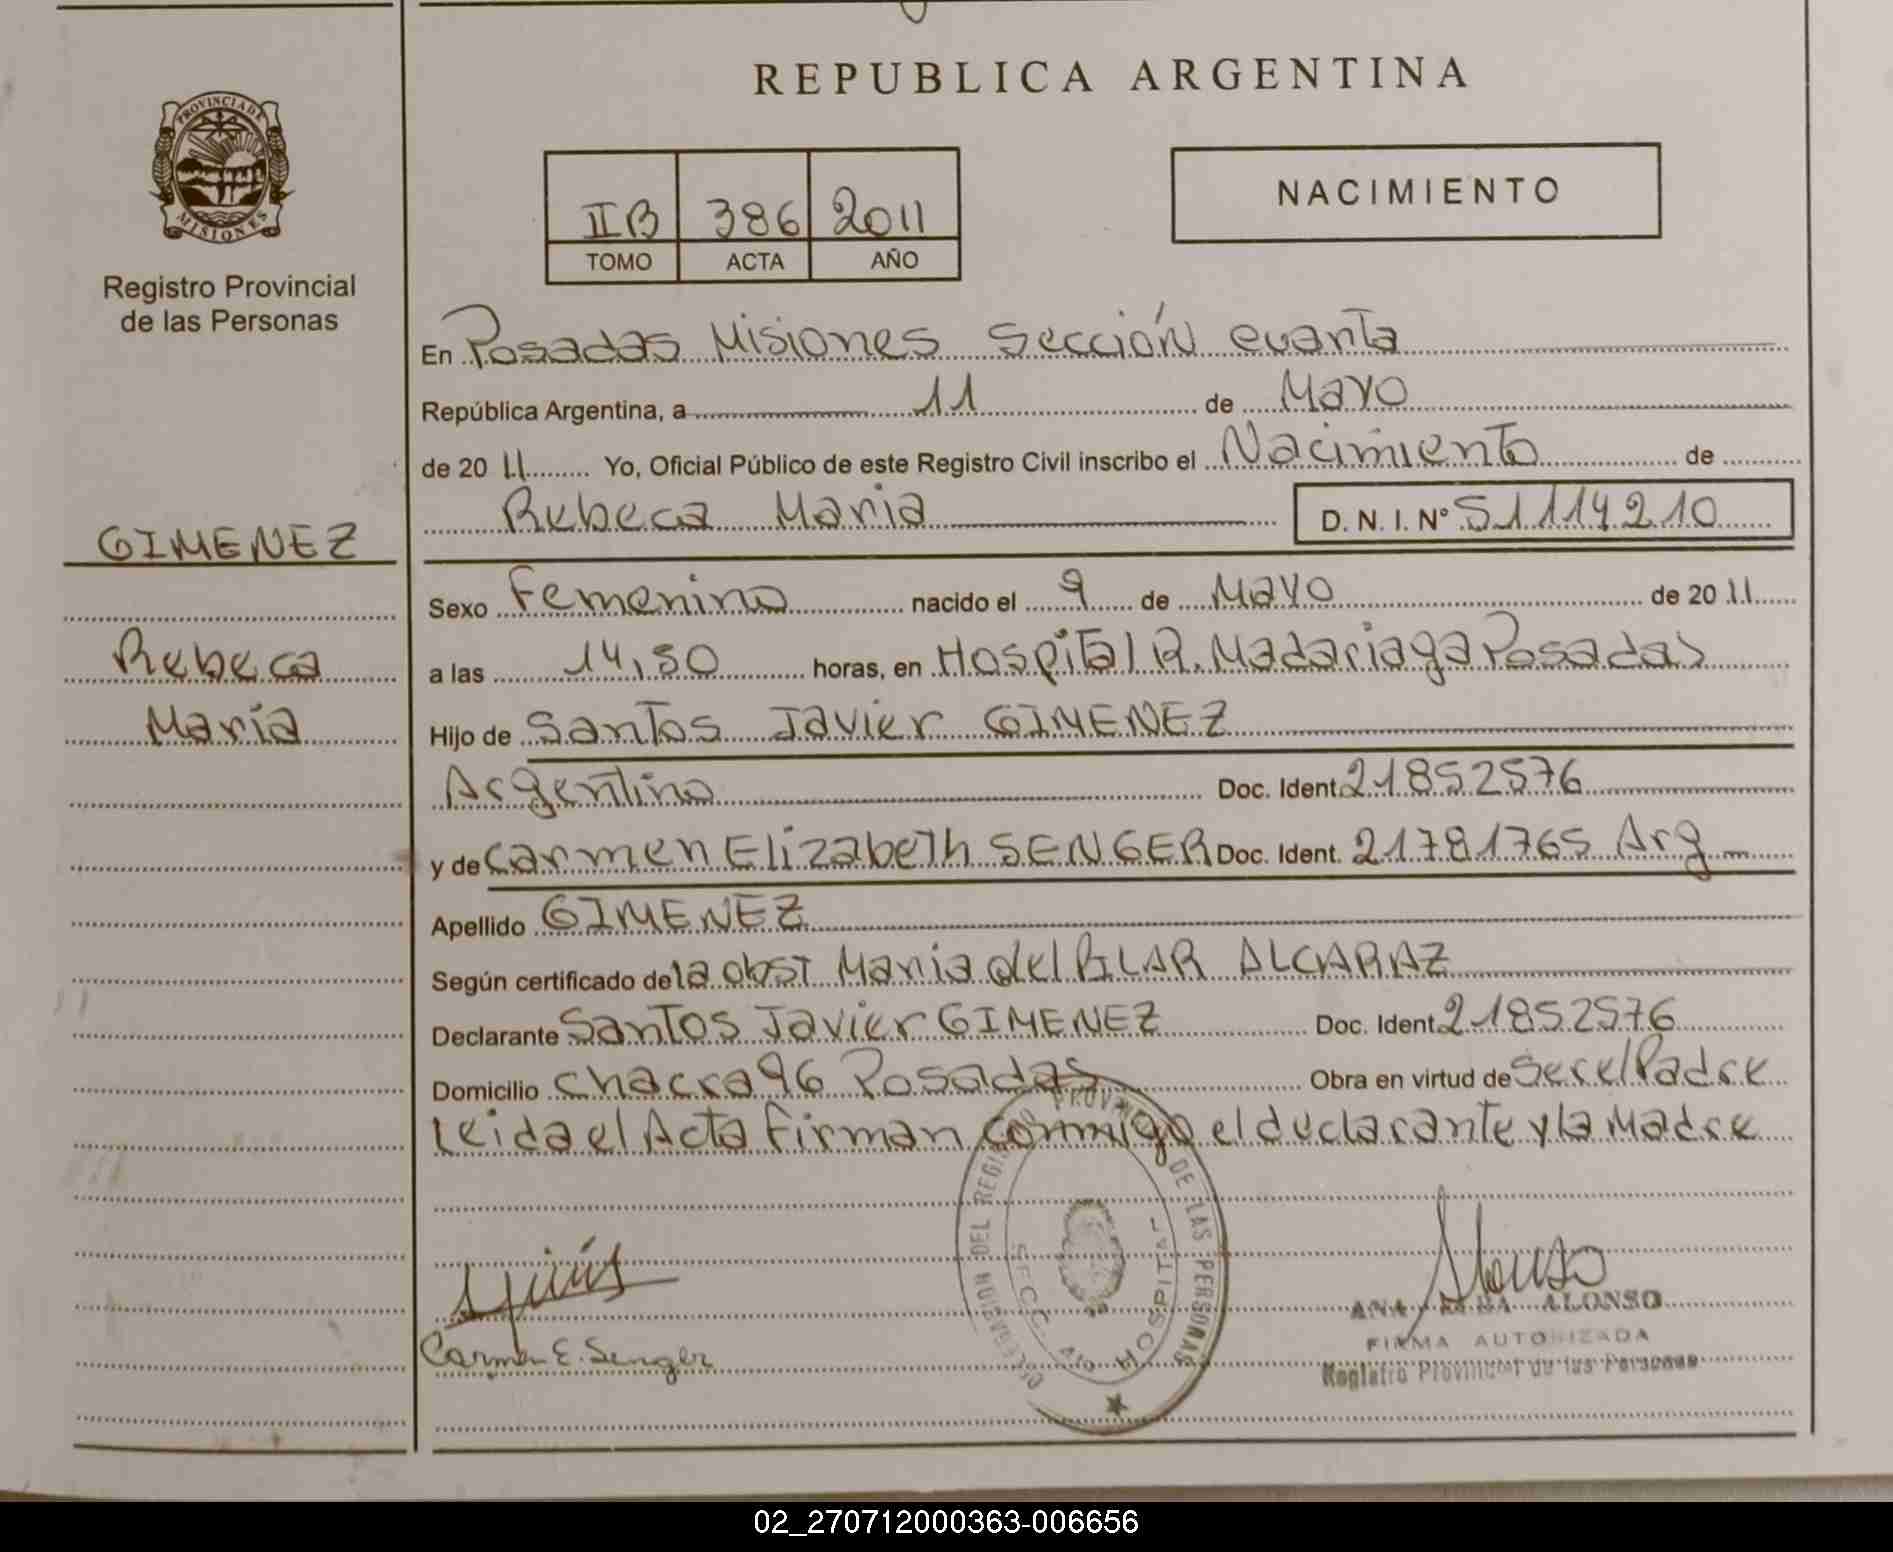 REPUBLICA ARGENTINA
PROVINCIA DE
MISIONES
Registro Provincial
de las Personas
IIB 386 2011
TOMO ACTA AÑO
NACIMIENTO
En Posadas Misiones Sección cuarta
República Argentina, a 11 de Mayo
de 2011 Yo, Oficial Público de este Registro Civil inscribo el Nacimiento de
Rebeca Maria D. N. I. Nº 51114210
GIMENEZ
Rebeca
Maria
Sexo Femenino nacido el 9 de Mayo de 2011
a las 14,50 horas, en Hospital R. Madariaga Posadas
Hijo de Santos Javier GIMENEZ
Argentino Doc. Ident. 21852576
y de Carmen Elizabeth SENGER Doc. Ident. 21781765 Arg
Apellido GIMENEZ
Según certificado de la obst Maria del PILAR ALCARAZ
Declarante Santos Javier GIMENEZ Doc. Ident 21852576
Domicilio chacra 96 Posadas Obra en virtud de ser el Padre
Leida el Acta Firman conmigo el declarante y la Madre
DELEGACION DEL REGISTRO PROVINCIAL DE LAS PERSONAS
SECC. 4ta HOSPITAL
Carmen E. Senger
Alonso
ANA ALONSO
FIRMA AUTORIZADA
Registro Provincial de las Personas
02_270712000363-006656